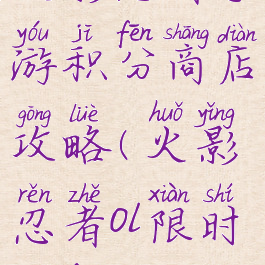 yóu jī fēn shāng diàn
游积分商店
gōng lüè huǒ yǐng
攻略(火影
rěn zhě xiàn shí
忍者ol限时